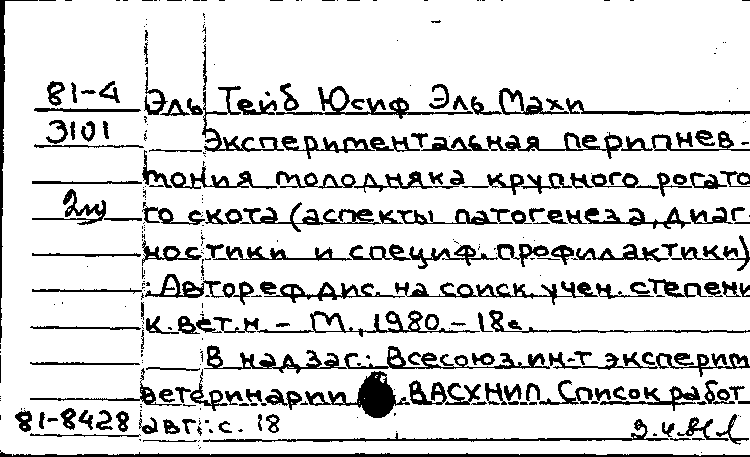 81-4 Эль Тейб Юсиф Эль Махи
3101 Экспериментальная перипнев-
мония молодняка крупного рогато
го скота (аспекты патогенеза, диаг-
ностики и специф. профилактики)
: Автореф. дис. на соиск. учен. степени
к. вет. н. – М., 1980. – 18с.
В надзаг.: Всесоюз. ин-т эксперим
ветеринарии . ВАСХНИЛ. Список работ
81-8428 авт.: с. 18